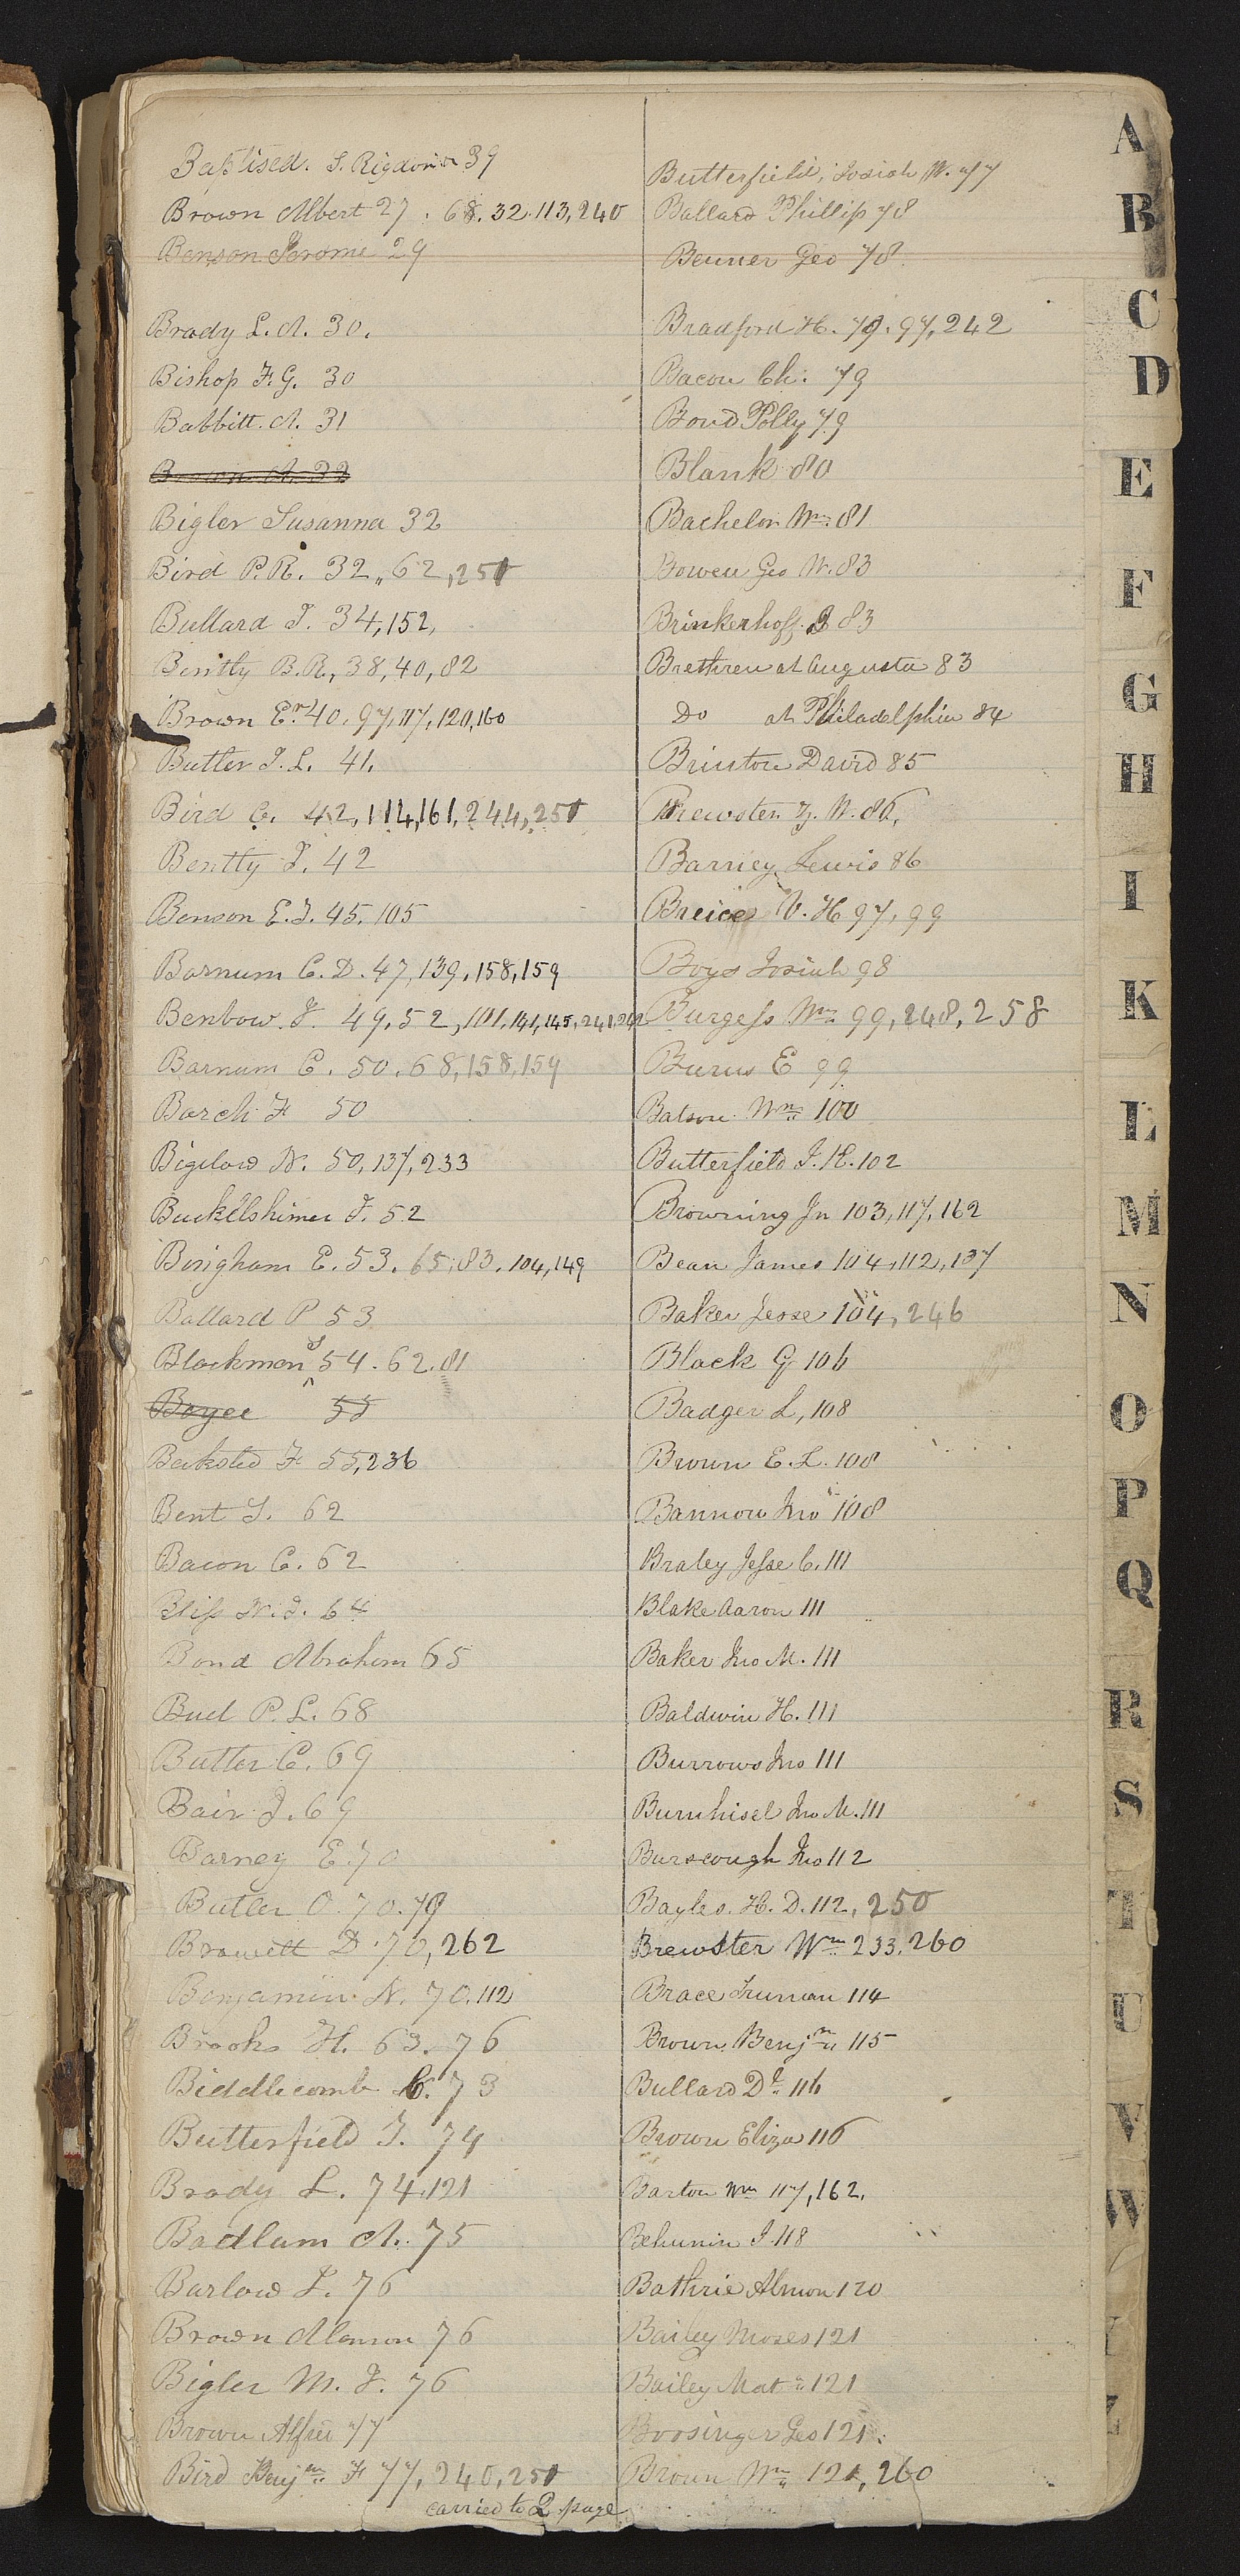 Baptised. S. Rigdon 39
Brown Albert 27. 68. 32. 113, 240
Benson Jerome 29
Brady L. A. 30.
Bishop F. G. 30
Babbitt. A. 31
Brown A. 32
Bigler Susanna 32
Bird P. R. 32,, 62, 251
Bullard I. 34, 152,
Bently B. R, 38, 40, 82
Brown Er. 40. 97, 117, 120, 160
Butler J. L. 41.
Bird C. 42, 114, 161, 244, 251
Bently J. 42
Benson E. T. 45. 105
Barnum C. D. 47, 139, 158, 159
Benbow. J. 49, 52, 101, 141, 145, 241, 242
Barnum C. 50. 68, 158, 159
Burch F 50
Bigelow N. 50, 137, 233
Buckelshimer J. 52
Bingham E. 53. 65, 83. 104, 149
Ballard P 53
Blackman S 54. 62. 81
Boyce 55
Beksted F 55, 236
Bent S. 62
Bacon C. 62
Bliss 64
Bond Abraham 65
Buel P. L. 68
Butler C. 69
Bair J. 69
Barney E. 70
Butler O. 70. 79
Browett D. 70, 262
Benjamin N. 70. 112
Brooks H. 63. 76
Biddlecomb C. 73
Butterfield J. 74
Brady L. 74, 121
Badlam A. 75
Barlow I. 76
Brown Alanson 76
Bigler M. J. 76
Brown Alfred 77
Bird Benjm F 77, 240, 251
carried to 2 page
Butterfield, Josiah W. 77
Ballard Phillip 78
Benner Geo 78.
Bradford H. 79. 97, 242
Bacon Ch. 79
Bond Polly 79
Blank 80
Bachelor Wm 81
Bowen Geo W. 83
Brinkerhoff. 83
Brethren at Augusta 83
Do at Philadelphia 84
Brinton David 85
Brewster Z. W. 86,
Barney Lewis 86
W. H 97, 99
Boys Josiah 98
Burgess Wm 99, 248, 258
Burns E 99
Batson Wm 100
Butterfield J. K. 102
Browning Jn 103, 117, 162
Bean James 104, 112, 137
Baker Jesse 104, 246
Black G 106
Badger L, 108
Brown E. L. 108
Bannon Jno 108
Braley Jesse C. 111
Blake Aaron 111
Baker Jno M. 111
Baldwin H. 111
Burrows Jno 111
Burnhisel Jno M. 111
Burscough Jno 112
Bayles. H. D. 112, 250
Brewster Wm 233, 260
Brace Truman 114
Brown Benjmn 115
Bullard Dl 116
Brown Eliza 116
Barton Wm 117, 162,
Behunin I 118
Bathrie Almon 120
Bailey Moses 121
Bailey Mat 121
Boosinger Geo 121.
Brown Wm 121, 260
A
B
C
D
E
F
G
H
I
K
L
M
N
O
P
Q
R
S
T
U
V
W
Y
Z